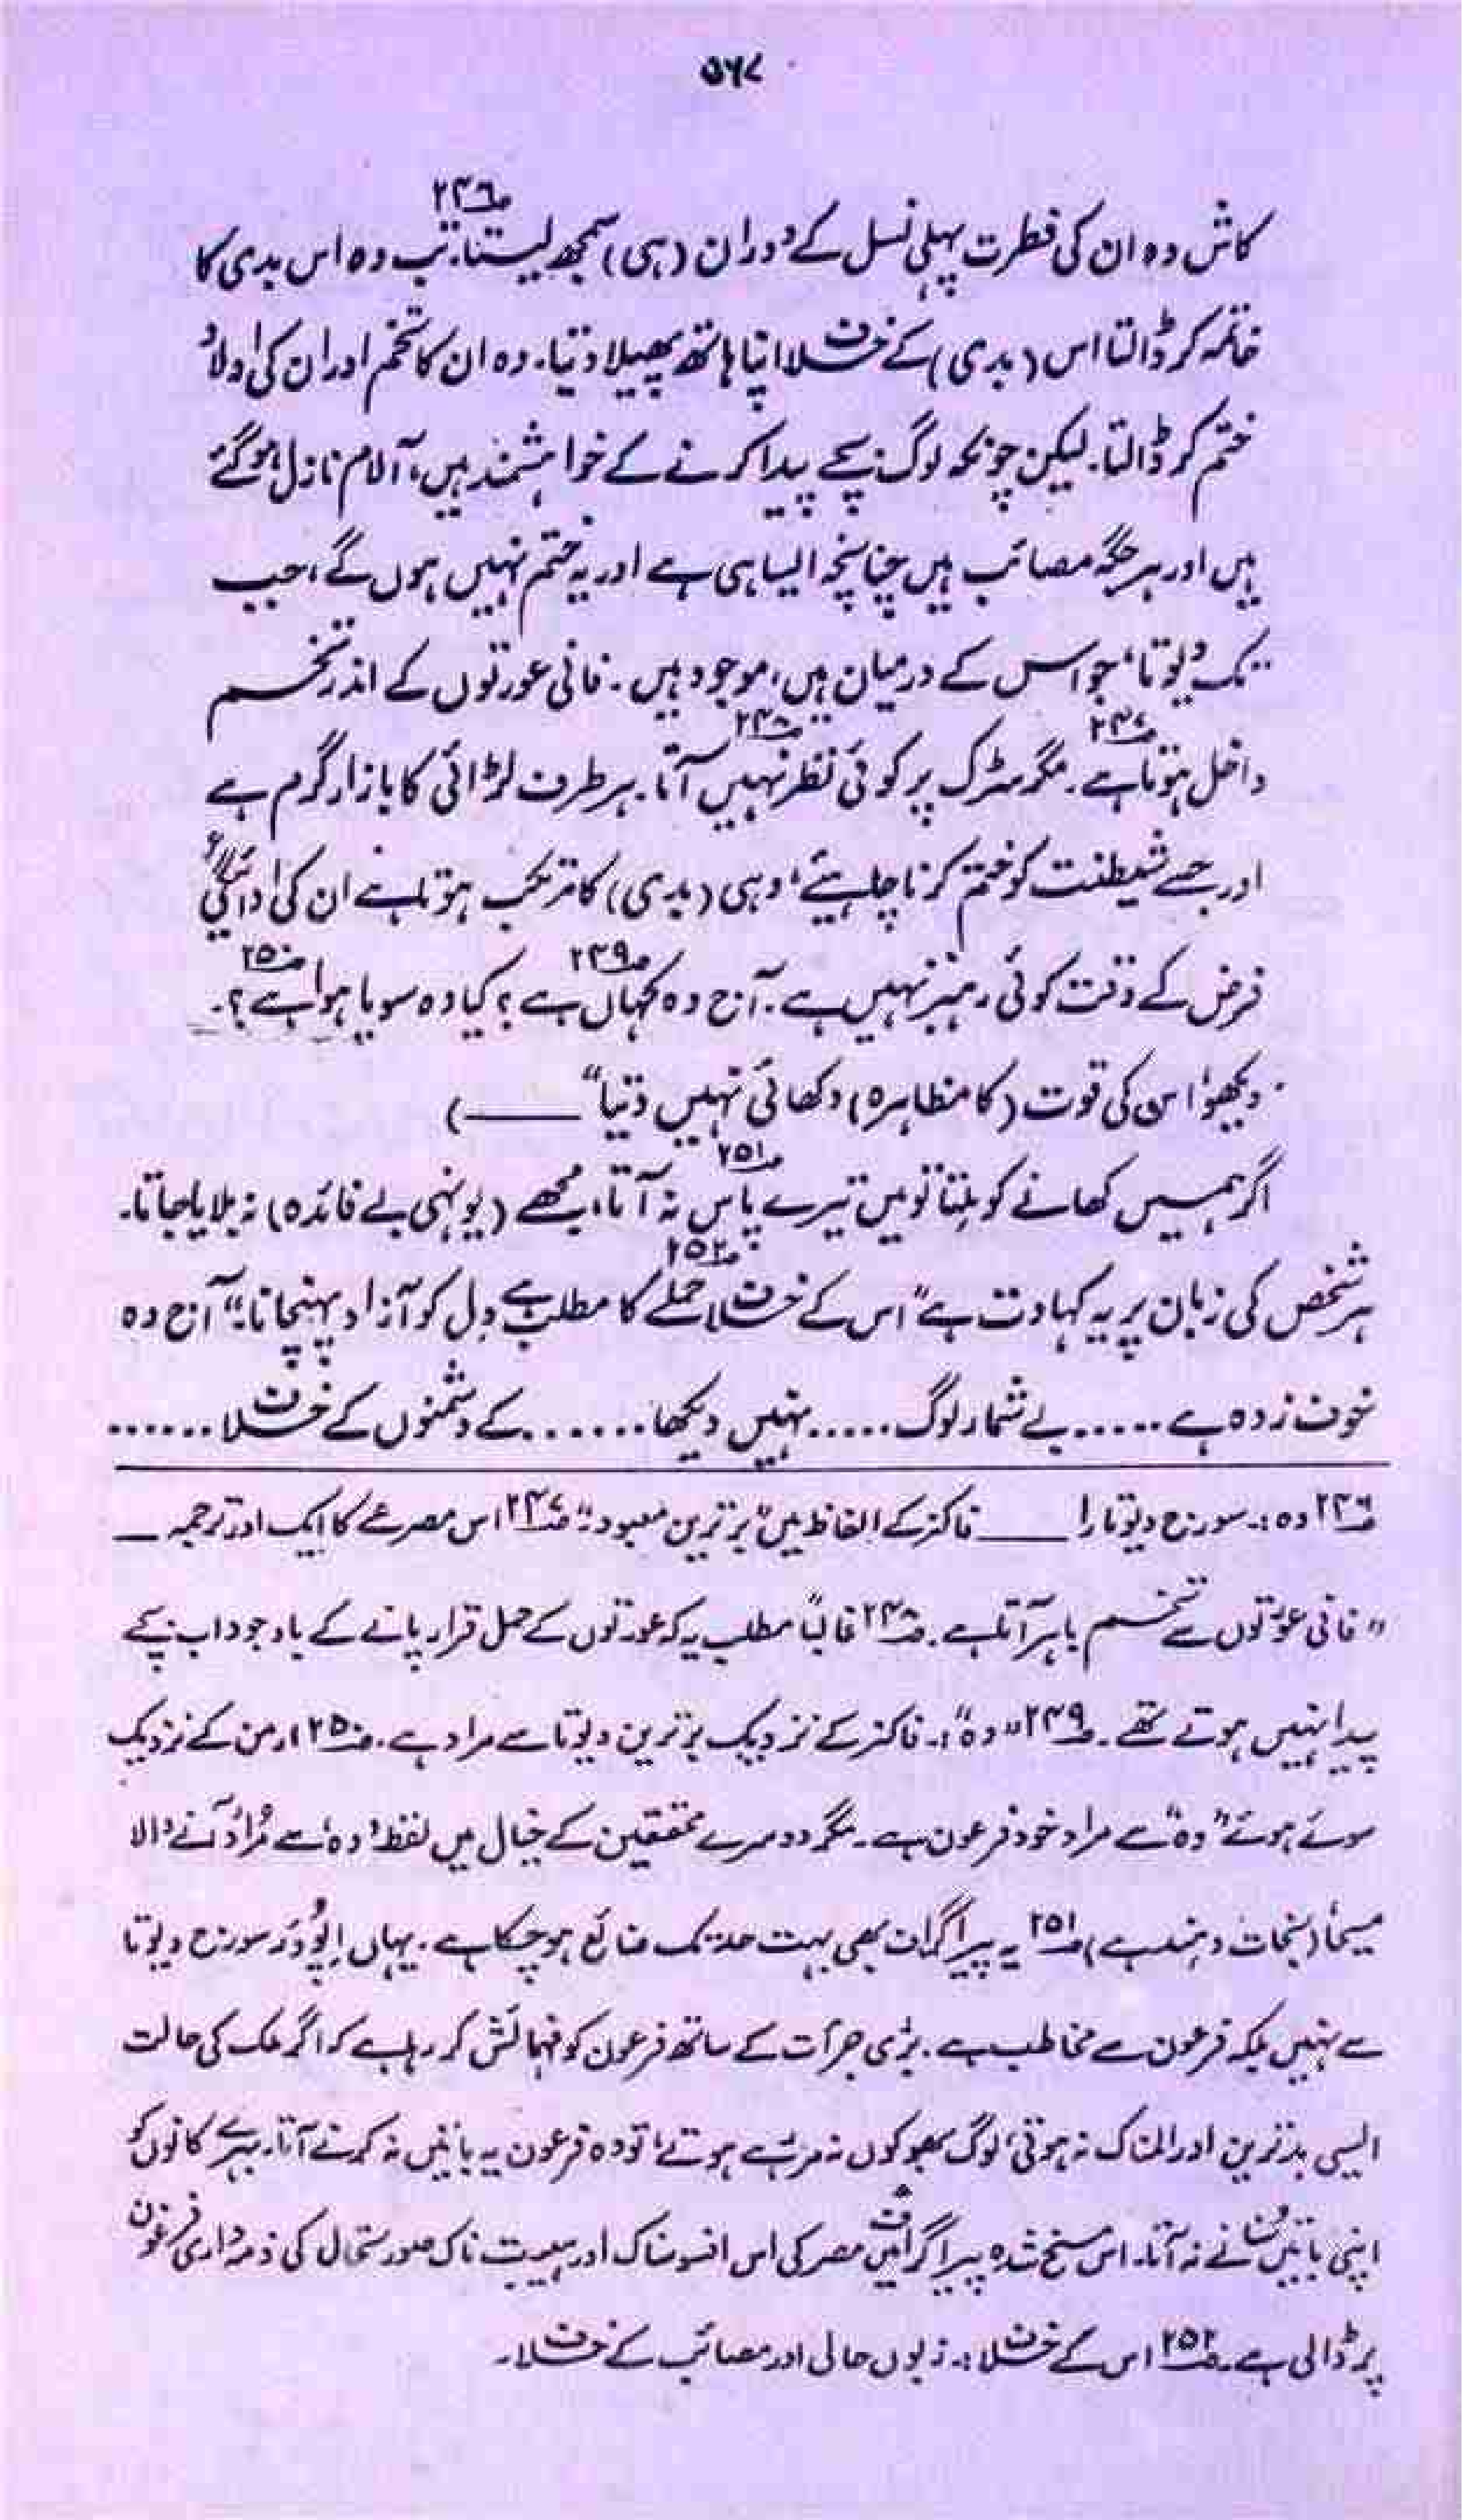 ۵۶۷
کاش وہ ان کی فطرت پہلی نسل کے دوران (ہی) سمجھ لیتا۲۴۶۔ تب وہ اس بدی کا
خاتمہ کر ڈالتا اس (بدی) کے خلاف اپنا ہاتھ پھیلا دیتا۔ وہ ان کا تخم اور ان کی اولاد
ختم کر ڈالتا۔ لیکن چونکہ لوگ بچے پیدا کرنے کے خواہشمند ہیں، آلام نازل ہو گئے
ہیں اور ہر جگہ مصائب ہیں چنانچہ ایسا ہی ہے اور یہ ختم نہیں ہوں گے، جب
تک دیوتا، جو اس کے درمیان ہیں، موجود ہیں۔ فانی عورتوں کے اندر تخم
داخل ہوتا ہے۲۴۷۔ مگر سڑک پر کوئی نظر نہیں۲۴۸ آتا۔ ہر طرف لڑائی کا بازار گرم ہے
اور جسے شیطنت کو ختم کرنا چاہیئے، وہی (بدی) کا مرتکب ہوتا ہے ان کی ادائیگیٔ
فرض کے وقت کوئی رہبر نہیں ہے۔ آج وہ کہاں۲۴۹ ہے؟ کیا وہ سویا ہوا۲۵۰ ہے؟۔
دیکھو، اس کی قوت (کا مظاہرہ) دکھائی نہیں دیتا" ـــــــ)
اگر ہمیں کھانے کو ملتا تو میں تیرے پاس۲۵۱ نہ آتا، مجھے (یونہی بے فائدہ) نہ بلایا جاتا۔
ہر شخص کی زبان پر یہ کہاوت ہے "اس کے خلاف حملے۲۵۲ کا مطلب ہے دل کو آزار پہنچانا"، آج وہ
خوف زدہ ہے ..... بے شمار لوگ ..... نہیں دیکھا ...... کے دشمنوں کے خلاف ......
۲۴۶ وہ:۔ سورج دیوتا را ـــــــ فاکنر کے الفاظ میں "برترین معبود"۔ ۲۴۷ اس مصرعے کا ایک اور ترجمہ ـــ
"فانی عورتوں سے تخم باہر آتا ہے۔ ۲۴۸ غالباً مطلب یہ کہ عورتوں کے حمل قرار پانے کے باوجود اب بچے
پیدا نہیں ہوتے تھے۔ ۲۴۹ "وہ":۔ فاکنر کے نزدیک برترین دیوتا سے مراد ہے۔ ۲۵۰ ارمن کے نزدیک
سوئے ہوئے "وہ" سے مراد خود فرعون ہے۔ مگر دوسرے محققین کے خیال میں لفظ 'وہ' سے مُراد آنے والا
مسیحا (نجات دہندہ ہے) ۲۵۱ یہ پیراگراف بھی بہت حد تک ضائع ہو چکا ہے۔ یہاں اپوُور سورج دیوتا
سے نہیں بلکہ فرعون سے مخاطب ہے۔ بڑی جرأت کے ساتھ فرعون کو فہمائش کر رہا ہے کہ اگر ملک کی حالت
ایسی بدترین اور المناک نہ ہوتی، لوگ بھوکوں نہ مر رہے ہوتے، تو وہ فرعون یہ باتیں نہ کرنے آتا۔ بہرے کانوں کو
اپنی باتیں سُنانے نہ آتا۔ اس مسخ شدہ پیراگراف میں مصر کی اس افسوسناک اور ہیبت ناک صورتحال کی ذمہ داری فرعون
پر ڈالی ہے۔ ۲۵۲ اس کے خلاف:۔ زبوں حالی اور مصائب کے خلاف۔